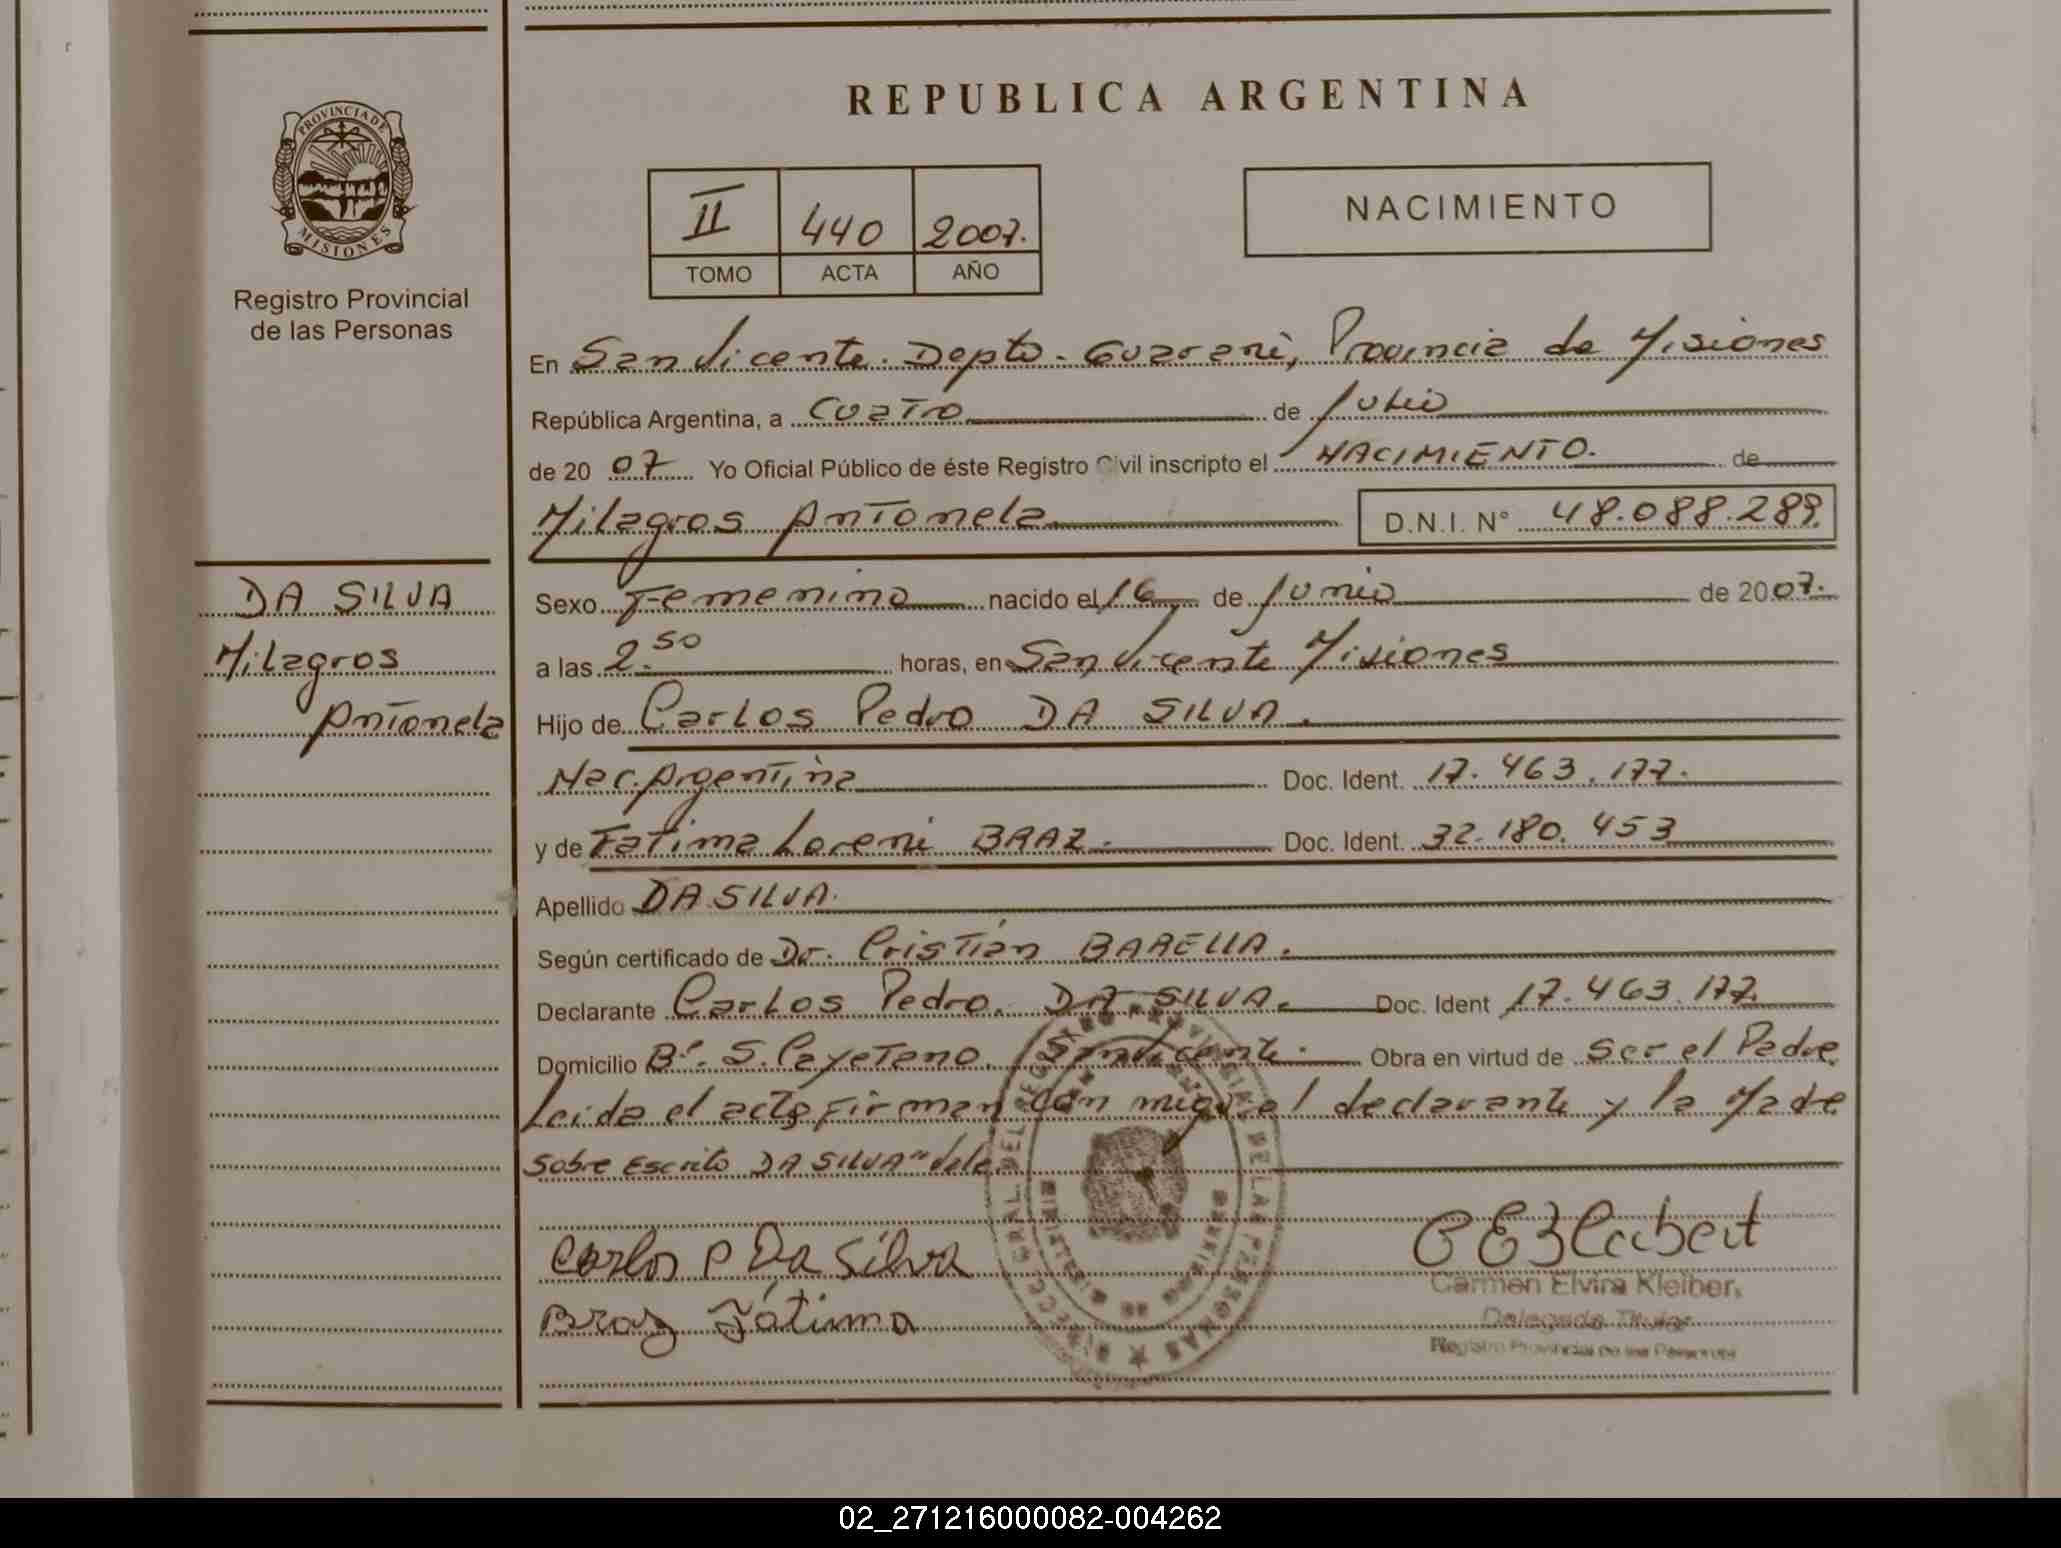 REPUBLICA ARGENTINA
PROVINCIA DE
MISIONES
Registro Provincial
de las Personas
II 440 2007.
TOMO ACTA AÑO
NACIMIENTO
En San Vicente. Depto. Guarani, Provincia de Misiones
República Argentina, a Cuatro de Julio
de 20 07 Yo Oficial Público de éste Registro Civil inscripto el NACIMIENTO. de
Milagros Antonela D.N.I. N° 48.088.289.
DA SILVA
Milagros
Antonela
Sexo Femenino nacido el 16 de Junio de 20 07.
a las 2.50 horas, en San Vicente Misiones
Hijo de Carlos Pedro DA SILVA.
Nac. Argentina Doc. Ident. 17.463.177.
y de Fatima Loreni BRAZ. Doc. Ident. 32.180.453
Apellido DA SILVA.
Según certificado de Dr. Cristián BARELLA.
Declarante Carlos Pedro. DA SILVA. Doc. Ident 17.463.177.
Domicilio B°. S. Cayetano. San Vicente. Obra en virtud de Ser el Padre
Leida el acta firman con migo el declarante y la Made
Sobre Escrito DA SILVA" Vale.
Carlos P Da Silva
Braz Fátima
Carmen Elvira Kleiber
Delegada Titular
Registro Provincial de las Personas
02_271216000082-004262